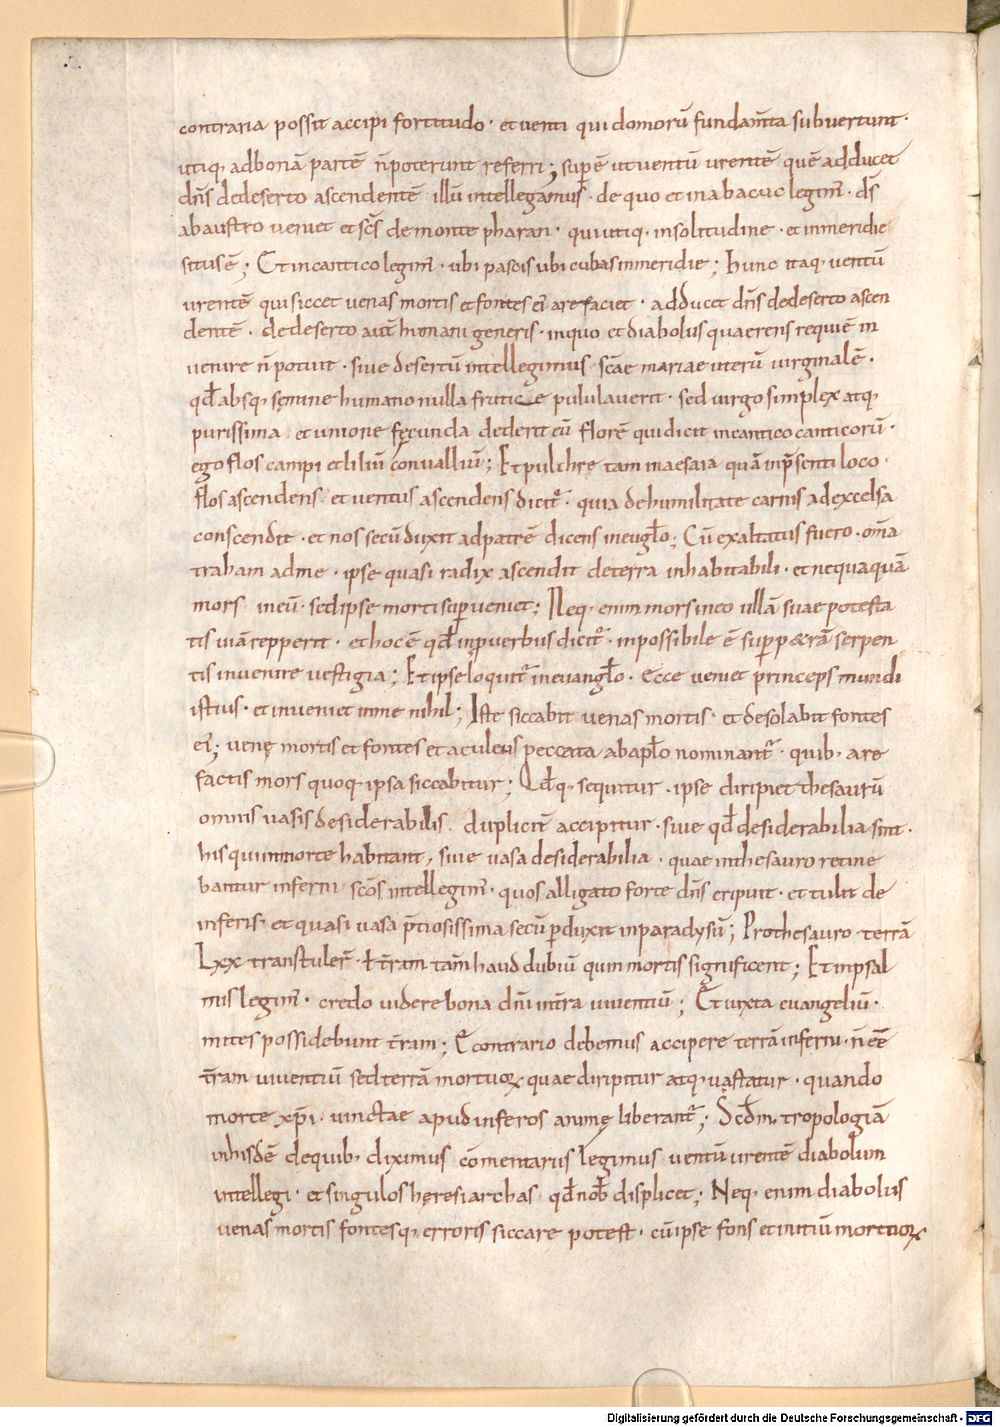 contraria possit accipi fortitudo · et venti qui domorū fundam̄ta subvertunt ·
utiq; ad bonā partē n̄ poterunt referri; supē ut ventū urentē quē adducet
dn̄s de deserto ascendentē illū intellegamus · de quo et in abacuc legim᷒ · d̄s
ab austro veniet et sc̄s de monte pharan · qui utiq; in solitudine · et in meridie
situs ē; Et in cantico legim᷒ · ubi pascis ubi cubas in meridie; hunc itaq; ventū
urentē qui siccet venas mortis et fontes ei᷒ arefaciet · adducet dn̄s de deserto ascen
dentē · de deserto aut̄ humani generis · in quo et diabolus quaerens requiē in
venire n̄ potuit · sive desertū intellegimus sc̄ae mariae uterū virginalē ·
qd̄ absq; sęmine humano nulla fritice pululaverit · sed virgo simplex atq;
purissima et unione fęcunda dederit eū florē qui dicit in cantico canticorū ·
ego flos campi et liliū convalliū; Et pulchre tam in aesaia quā in p̄senti loco ·
flos ascendens et ventus ascendens dicit᷑ · quia de humilitate carnis ad excelsa
conscendit · et nos secū duxit ad patrē dicens in eugl̄o; Cū exaltatus fuero · om̄a
traham ad me · ipse quasi radix ascendit de terra inhabitabili · et nequaquā
mors in eū · sed ipse morti sup̱veniet; Neq; enim mors in eo ullā suae potesta
tis viā repperit · et hoc ē qd̄ in p̱verbiis dicit᷑ · inpossibile ē sup̱ p&rā serpen
tis invenire vestigia; Et ipse loquit᷑ in evangl̄o · Ecce veniet princeps mundi
istius · et inveniet in me nihil; Iste siccabit venas mortis · et desolabit fontes
ei᷒; venę mortis et fontes et aculeus peccata ab apl̄o nominant᷑ · quib; are
factis mors quoq; ipsa siccabitur; Qd̄q; sequitur · ipse diripiet thesaurū
omnis vasis desiderabilis · duplicit̄ accipitur · sive qd̄ desiderabilia sint ·
his qui in morte habitant, sive vasa desiderabilia · quae in thesauro retine
bantur inferni sc̄os intellegim᷒ · quos alligato forte dn̄s eripuit · et tulit de
inferis · et quasi vasa p̄tiosissima secū p̱duxit in paradysū; Pro thesauro terrā
Lxx transtuler̄ · ł t̄ram tam̄ haud dubiū quin mortis significent; Et in psal
mis legim᷒ · credo videre bona dn̄i in t̄ra viventiū; Et iuxta evangeliū ·
mites possidebunt t̄ram; E contrario debemus accipere terrā inferni · n̄ eē
t̄ram viventiū sed terrā mortuoꝝ quae diripitur atq; vastatur · quando
morte xp̄i · vinctae apud inferos animę liberant᷑; Scd̄m tropologiā
in hisdē de quib; diximus cōmentariis legimus ventū urentē diabolum
intellegi · et singulos hęresiarchas qd̄ nob̄ displicet; Neq; enim diabolus
venas mortis fontesq; erroris siccare potest · cū ipse fons et initiū mortuoꝝ
Digitalisierung gefördert durch die Deutsche Forschungsgemeinschaft - DFG